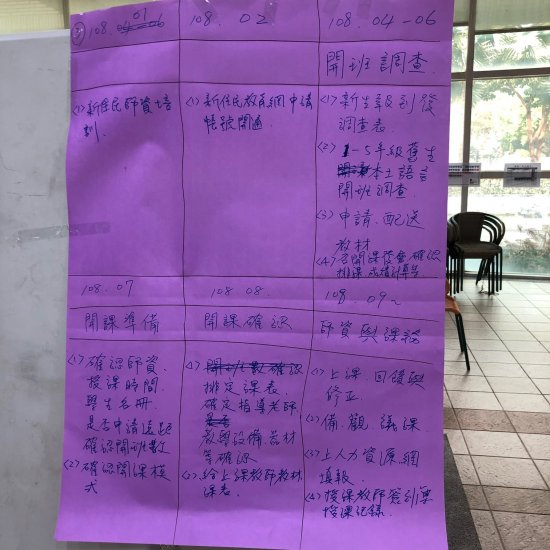 108.01
108.02
108.04-06
開班調查
(1)新住民師資培
訓
(1)新住民教育網申請
帳號開通
(1)新生報到後
調查表
(2) 1-5年級舊生
本土語言
開班調查
(3)申請、配送
教材
(4)召開課發會確認
排課
108.07
108.08.
108.09~
開課準備
開課確認
師資與課務
(1)確認師資、
授課時間、
學生名冊、
是否申請
確認開班數
(2)確認開課模
式
(1)開班數確認
排定課表、
確定指導老師、
教學設備、器材
等確認
(2)給上課教師教材、
課表、
(1)上課、回饋與
修正
(2)備、觀、議課
(3)上人力資源網
填報、
(4)授課教師簽到單
授課記錄、